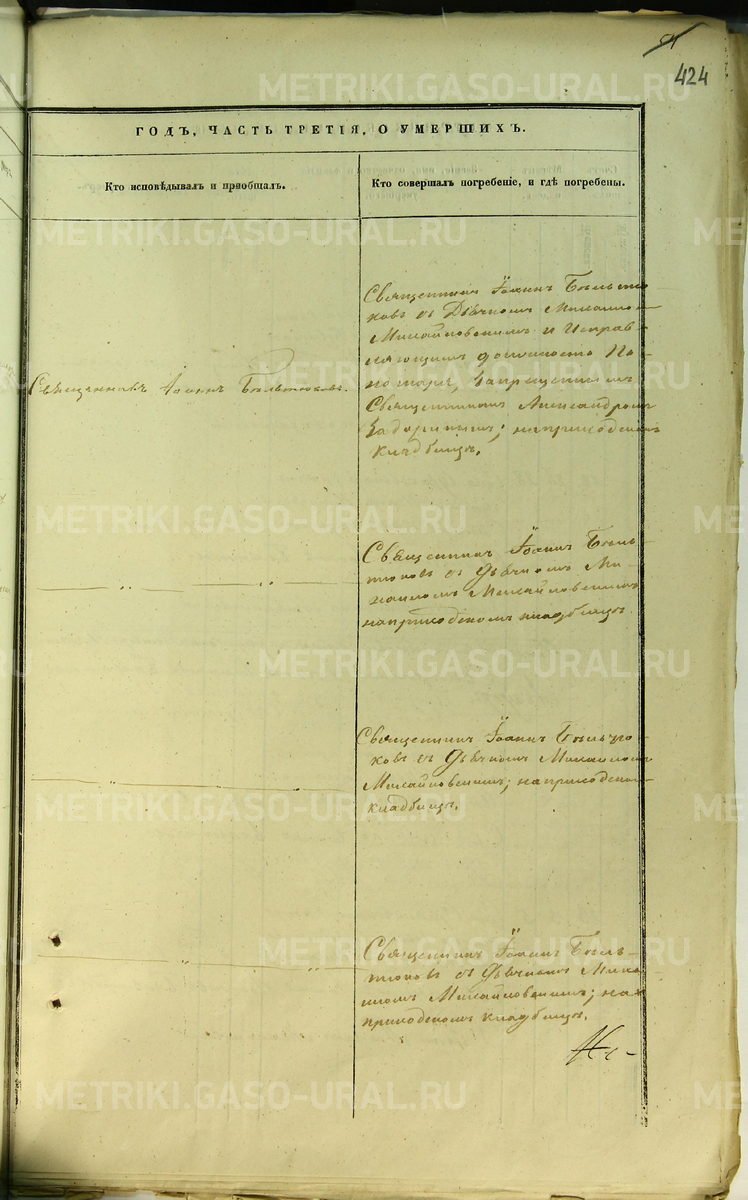 424
ГОДЪ, ЧАСТЬ ТРЕТІЯ, О УМЕРШИХЪ.
Кто исповѣдывалъ и пріобщалъ.
Кто совершалъ погребеніе, и гдѣ погребены.
Священникъ Іоаннъ Бѣльтюковъ.
Священникъ Іоаннъ Бѣльтю-
ковъ съ Дьячкомъ Михаиломъ
Михайловскимъ и Исправ-
ляющимъ должность По-
номаря, Запрещеннымъ
Священникомъ Александромъ
на приходскомъ
кладбищѣ.
Священникъ Іоаннъ Бѣль-
тюковъ съ Дьячкомъ Ми-
хаиломъ Михайловскимъ
на приходскомъ кладбищѣ.
Священникъ Іоаннъ Бѣльтю-
ковъ съ Дьячкомъ Михаиломъ
Михайловскимъ; на приходскомъ
кладбищѣ.
Священникъ Іоаннъ Бѣль-
тюковъ съ Дьячкомъ Миха-
иломъ Михайловскимъ; на
приходскомъ кладбищѣ.
METRIKI.GASO-URAL.RU